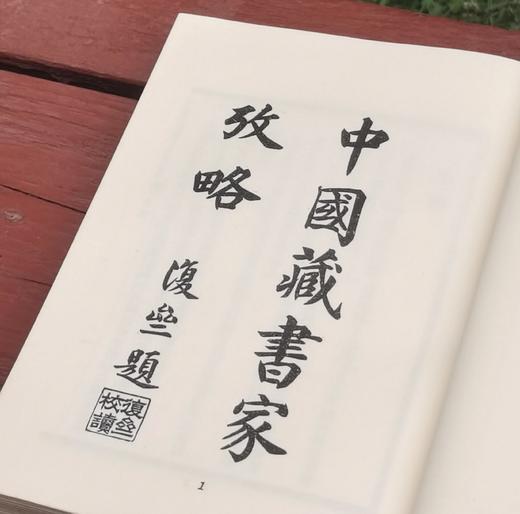 中國藏書家
攷略
復題
復
校讀
1